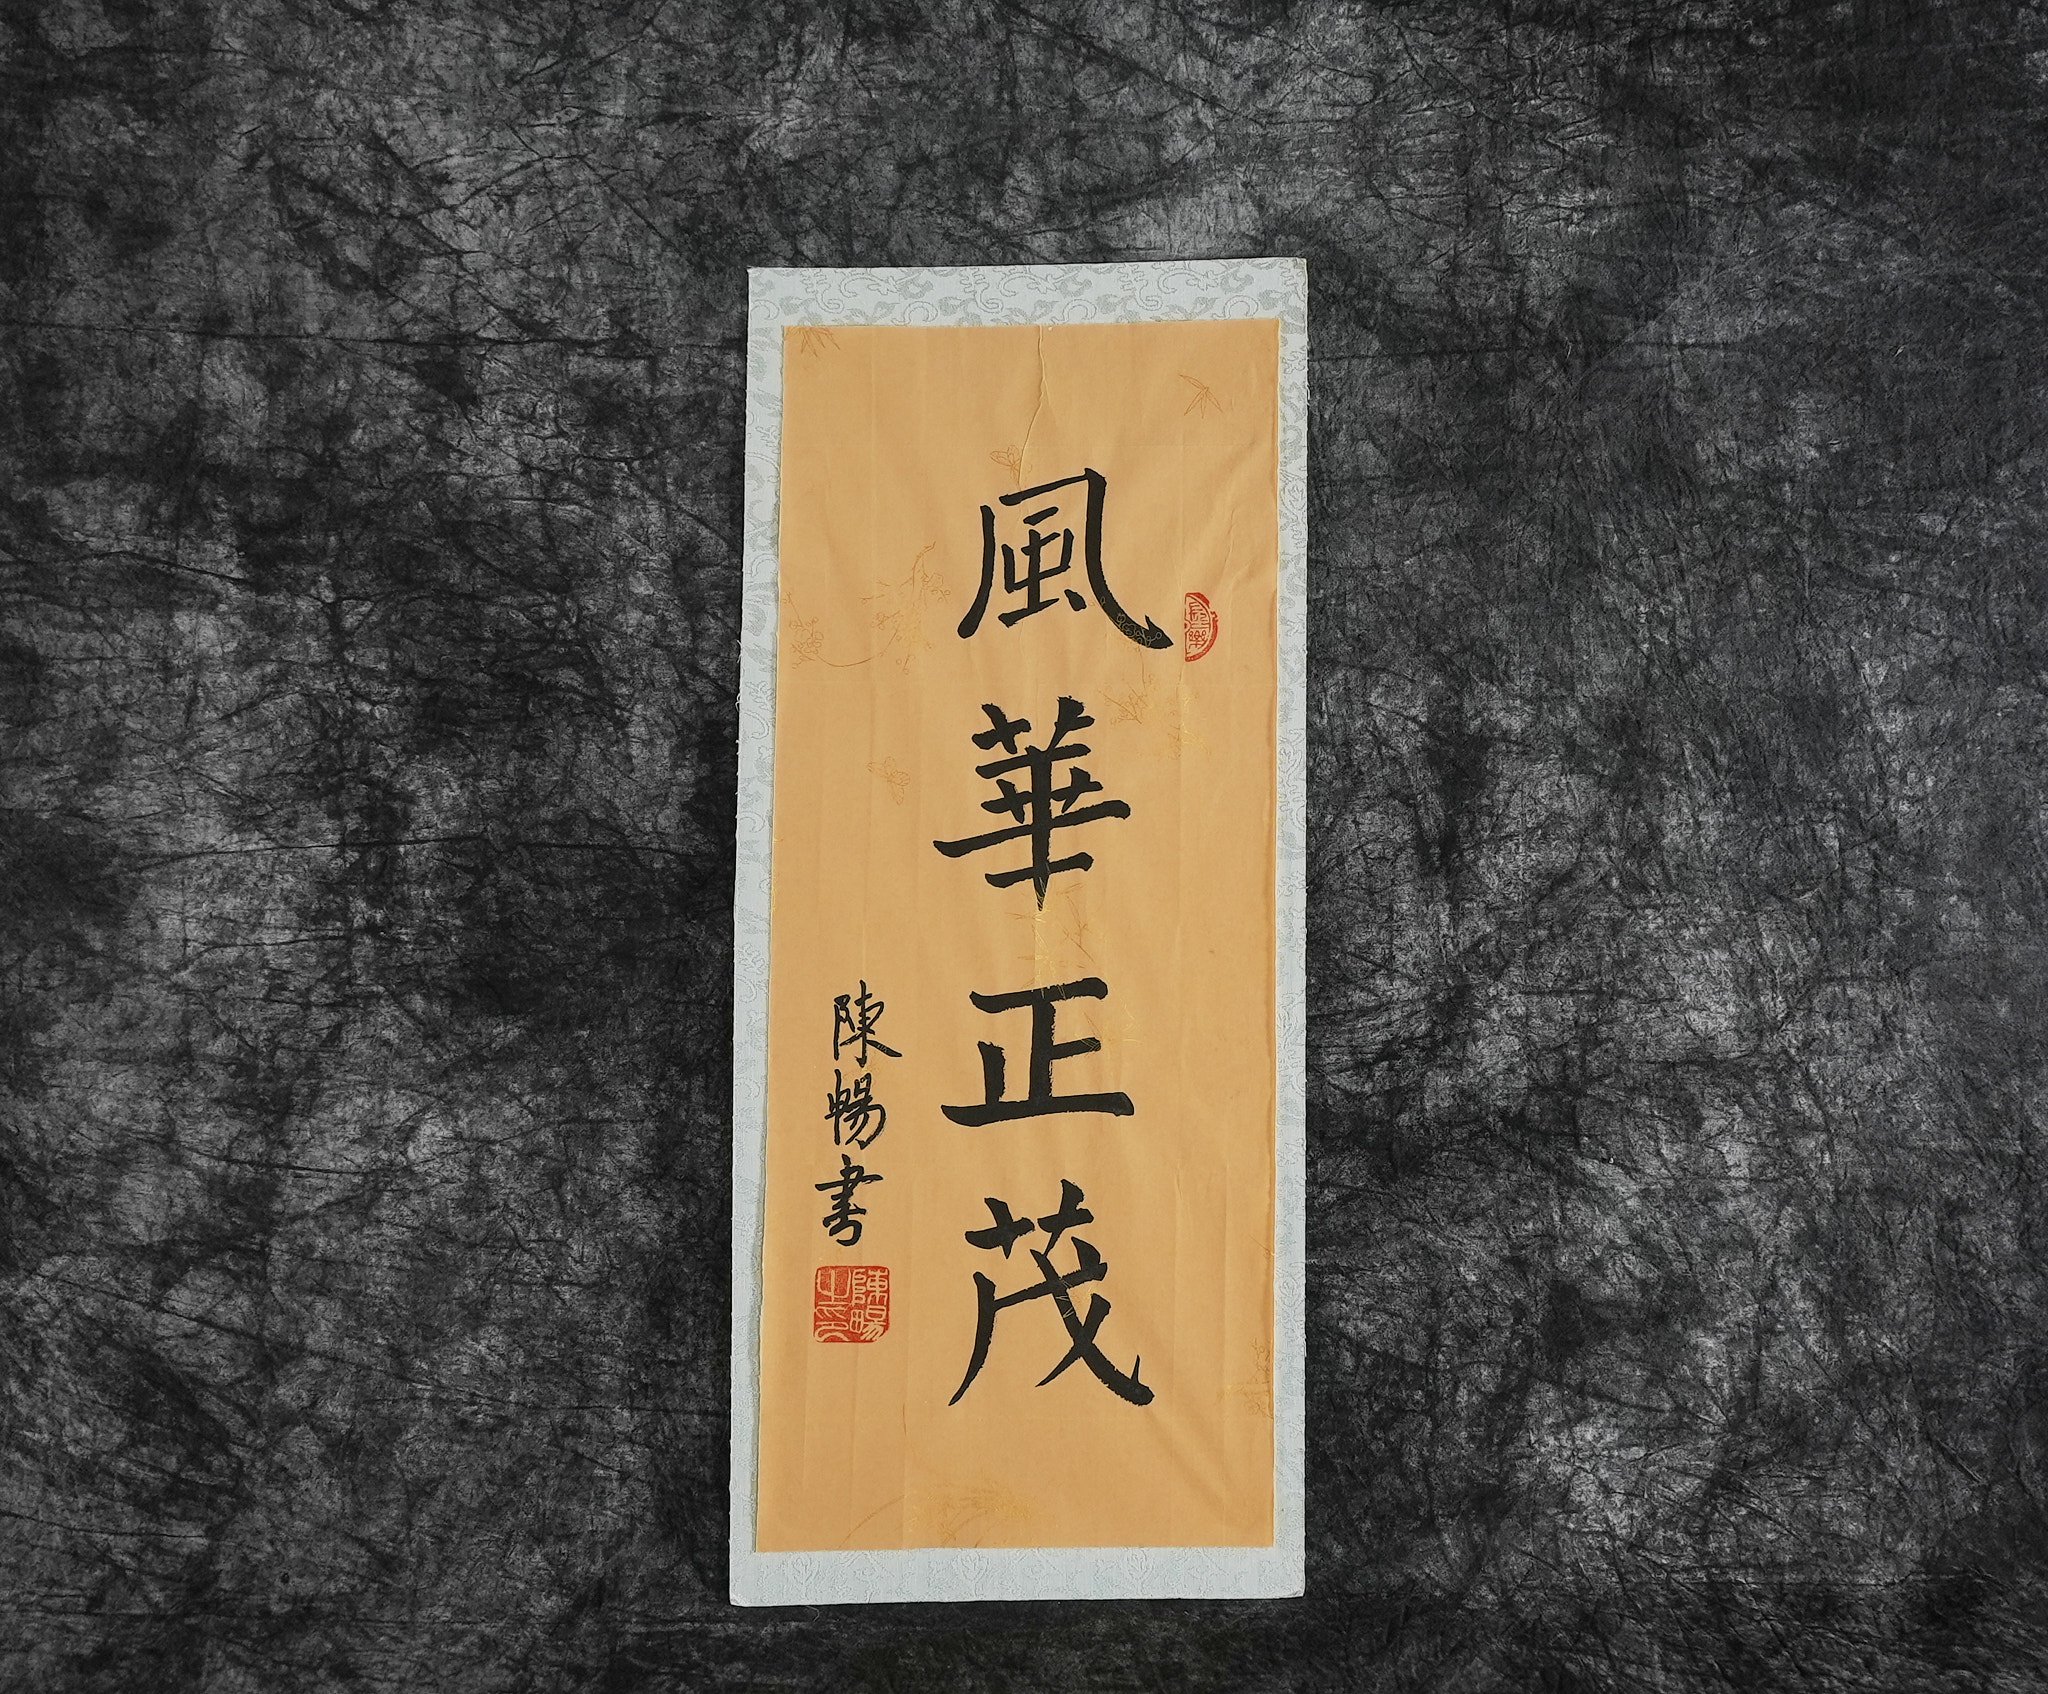 風華正茂
陳暢書
陳暢之印